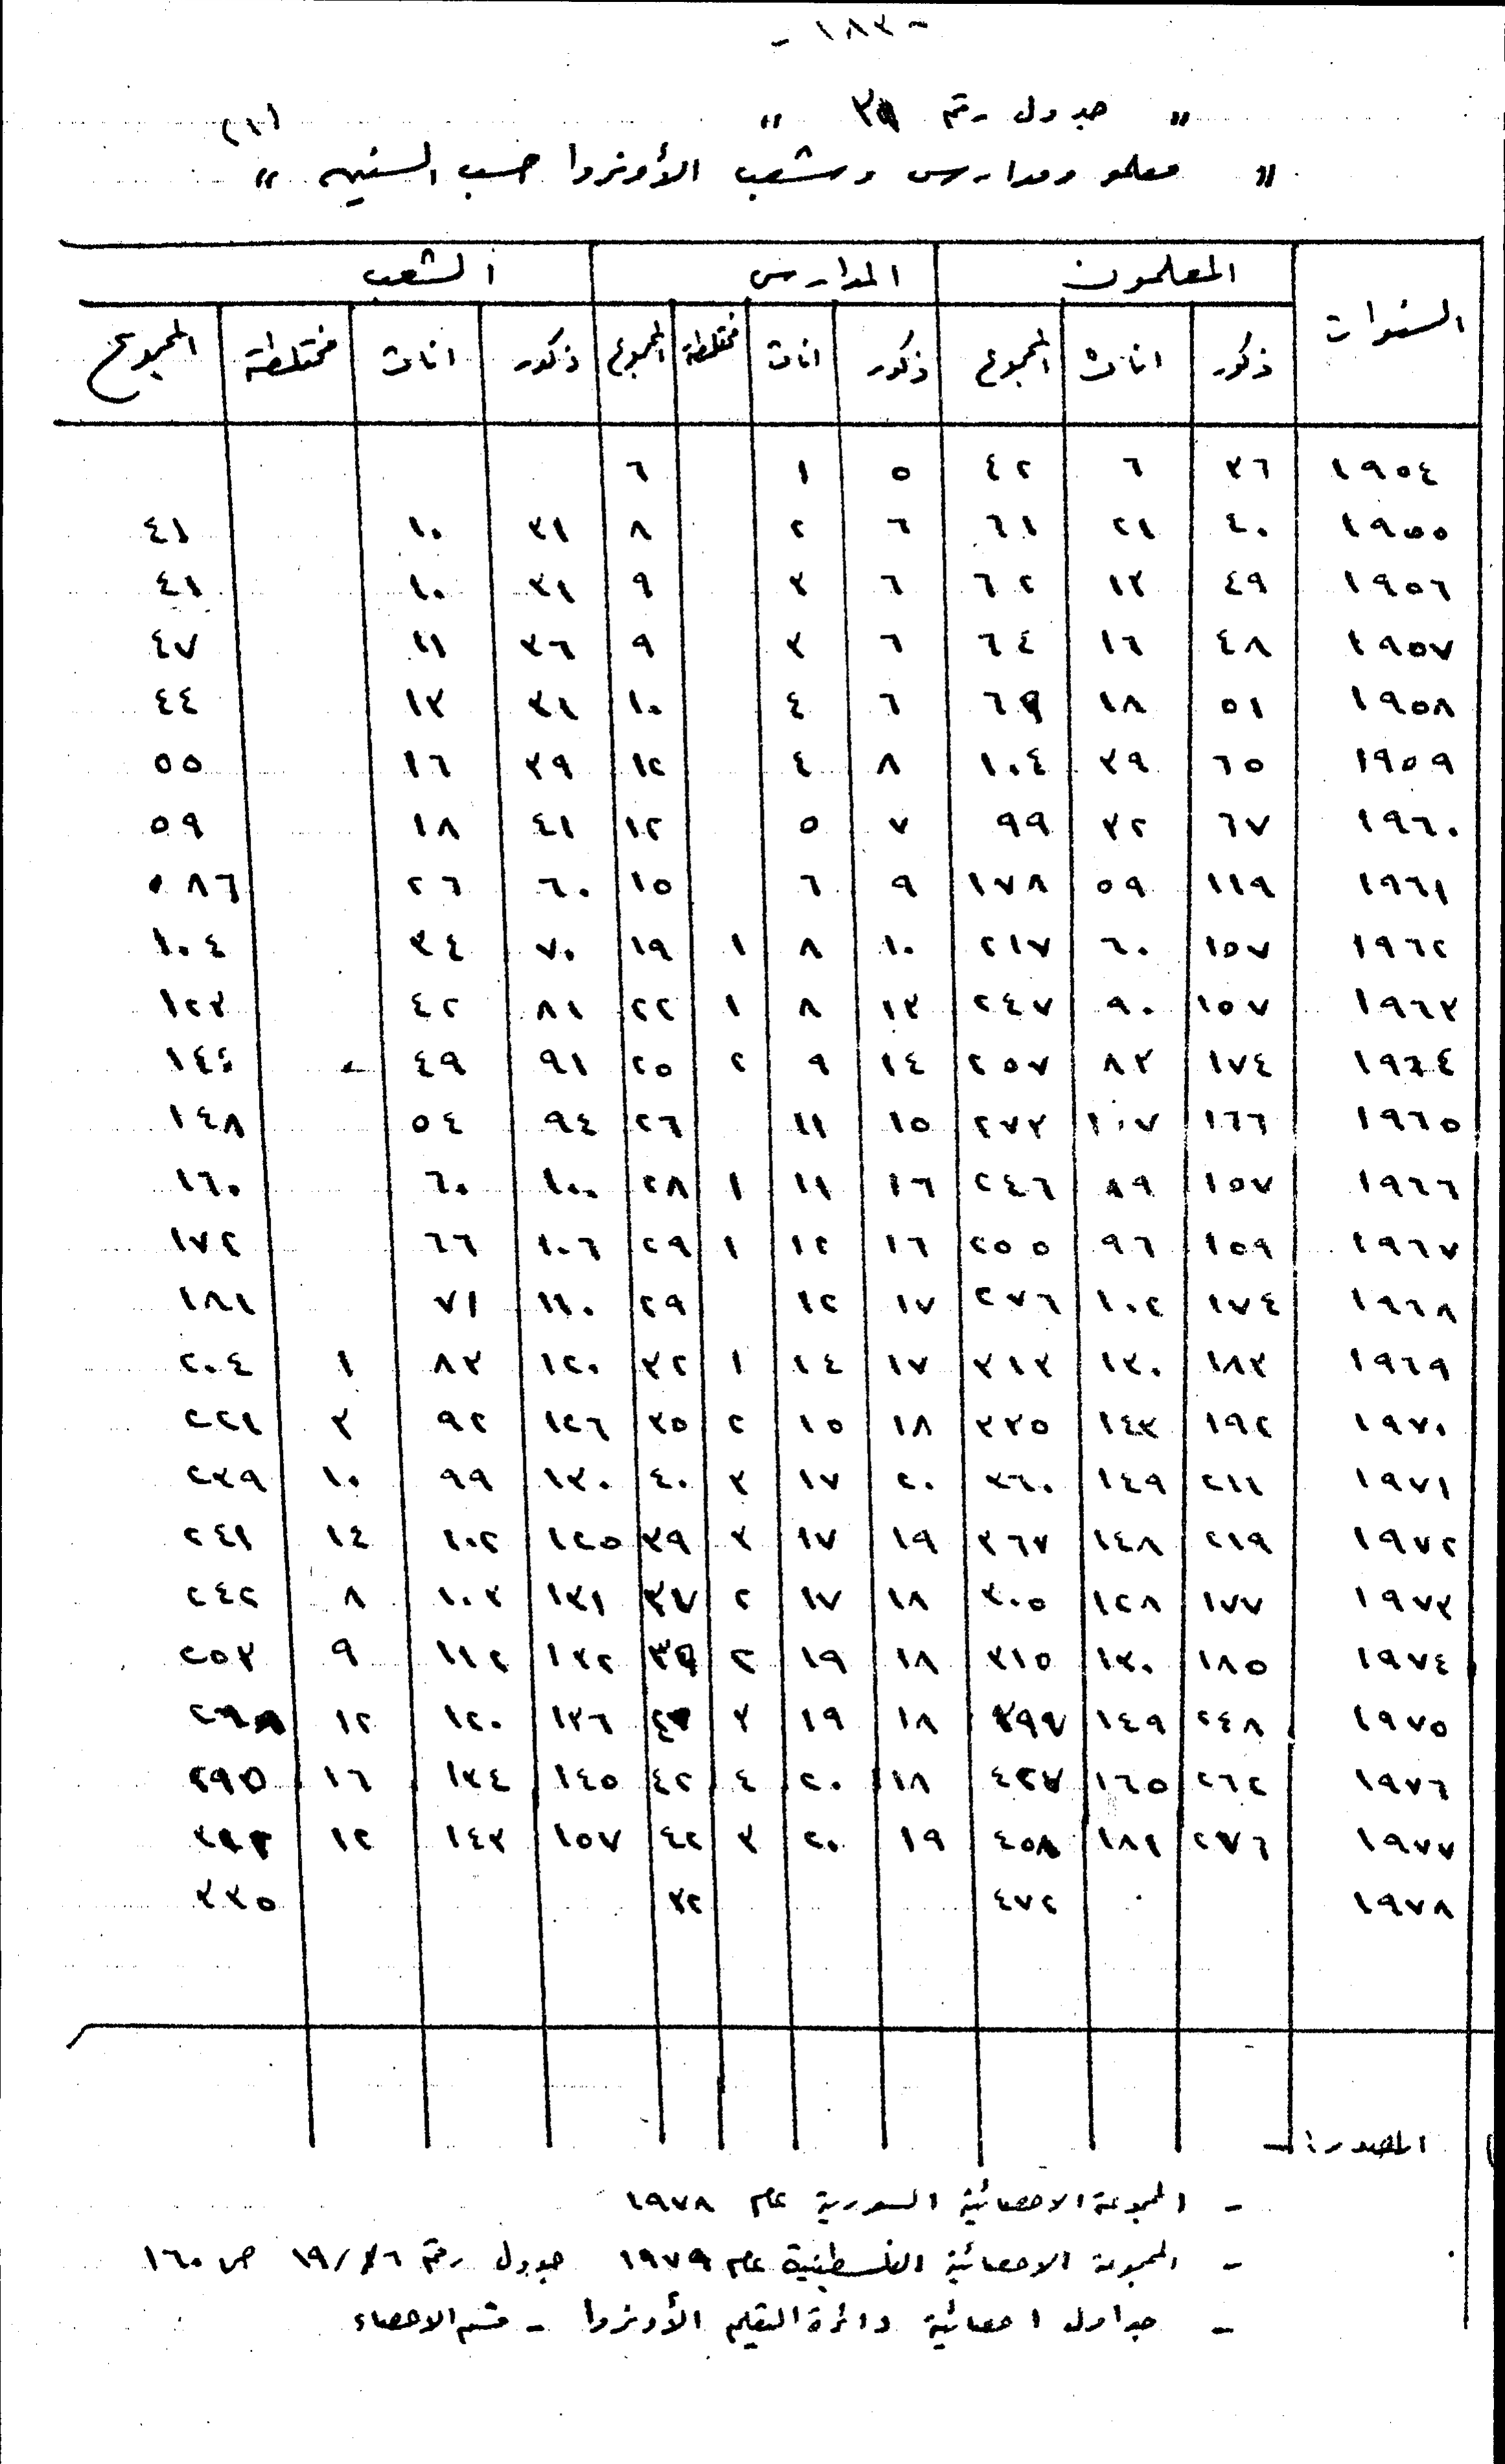 - ١٨٣ -
" جدول رقم ٣٩ "
" معلمو ومدارس وشعب الأونروا حسب السنين " (١)
السنوات المعلمون المدارس الشعب
ذكور اناث المجموع ذكور اناث مختلطة المجموع ذكور اناث مختلطة المجموع
١٩٥٤ ٣٦ ٦ ٤٢ ٥ ١ ٦
١٩٥٥ ٤٠ ٢١ ٦١ ٦ ٢ ٨ ٣١ ١٠ ٤١
١٩٥٦ ٤٩ ١٣ ٦٢ ٦ ٣ ٩ ٣١ ١٠ ٤١
١٩٥٧ ٤٨ ١٦ ٦٤ ٦ ٣ ٩ ٣٦ ١١ ٤٧
١٩٥٨ ٥١ ١٨ ٦٩ ٦ ٤ ١٠ ٣١ ١٣ ٤٤
١٩٥٩ ٦٥ ٣٩ ١٠٤ ٨ ٤ ١٢ ٣٩ ١٦ ٥٥
١٩٦٠ ٦٧ ٣٢ ٩٩ ٧ ٥ ١٢ ٤١ ١٨ ٥٩
١٩٦١ ١١٩ ٥٩ ١٧٨ ٩ ٦ ١٥ ٦٠ ٢٦ ٨٦
١٩٦٢ ١٥٧ ٦٠ ٢١٧ ١٠ ٨ ١ ١٩ ٧٠ ٣٤ ١٠٤
١٩٦٣ ١٥٧ ٩٠ ٢٤٧ ١٣ ٨ ١ ٢٢ ٨١ ٤٢ ١٢٣
١٩٦٤ ١٧٤ ٨٣ ٢٥٧ ١٤ ٩ ٢ ٢٥ ٩١ ٤٩ ١٤٤
١٩٦٥ ١٦٦ ١٠٧ ٢٧٣ ١٥ ١١ ٢٦ ٩٤ ٥٤ ١٤٨
١٩٦٦ ١٥٧ ٨٩ ٢٤٦ ١٦ ١١ ١ ٢٨ ١٠٠ ٦٠ ١٦٠
١٩٦٧ ١٥٩ ٩٦ ٢٥٥ ١٦ ١٢ ١ ٢٩ ١٠٦ ٦٦ ١٧٢
١٩٦٨ ١٧٤ ١٠٢ ٢٧٦ ١٧ ١٢ ٢٩ ١١٠ ٧١ ١٨١
١٩٦٩ ١٨٣ ١٣٠ ٣١٣ ١٧ ١٤ ١ ٣٢ ١٢٠ ٨٣ ١ ٢٠٤
١٩٧٠ ١٩٢ ١٤٣ ٣٣٥ ١٨ ١٥ ٢ ٣٥ ١٢٦ ٩٢ ٣ ٢٢١
١٩٧١ ٢١١ ١٤٩ ٣٦٠ ٢٠ ١٧ ٣ ٤٠ ١٣٠ ٩٩ ١٠ ٢٣٩
١٩٧٢ ٢١٩ ١٤٨ ٣٦٧ ١٩ ١٧ ٣ ٣٩ ١٢٥ ١٠٢ ١٤ ٢٤١
١٩٧٣ ١٧٧ ١٢٨ ٣٠٥ ١٨ ١٧ ٢ ٣٧ ١٣١ ١٠٣ ٨ ٢٤٢
١٩٧٤ ١٨٥ ١٣٠ ٣١٥ ١٨ ١٩ ٢ ٣٩ ١٣٢ ١١٢ ٩ ٢٥٣
١٩٧٥ ٢٤٨ ١٤٩ ٣٩٧ ١٨ ١٩ ٣ ٤٠ ١٣٦ ١٢٠ ١٢ ٢٦٨
١٩٧٦ ٢٦٢ ١٦٥ ٤٢٧ ١٨ ٢٠ ٤ ٤٢ ١٤٥ ١٣٤ ١٦ ٢٩٥
١٩٧٧ ٢٧٦ ١٨٢ ٤٥٨ ١٩ ٢٠ ٣ ٤٢ ١٥٧ ١٤٣ ١٢ ٣١٢
١٩٧٨ ٤٧٢ ٣٢ ٣٣٥
المصدر :-
- المجموعة الاحصائية السورية عام ١٩٧٨
- المجموعة الاحصائية الفلسطينية عام ١٩٧٩ جدول رقم ٦/١٩ ص ١٦٠
- جداول احصائية دائرة التعليم الأونروا - قسم الاحصاء